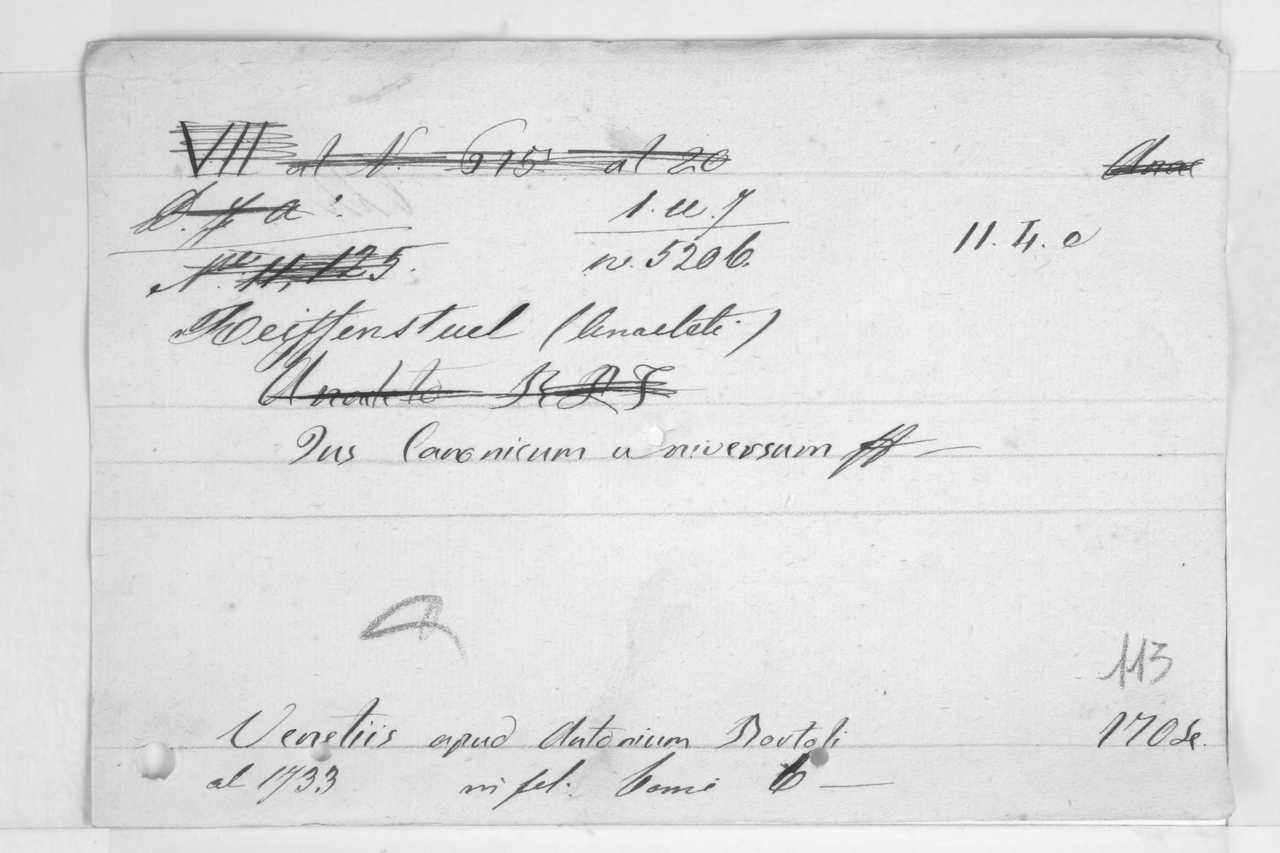 VII al N. 615 al 20
1. u. 7
N. 11,125. n. 5206. 11. 4. o
Reiffenstuel (Anacleti)
Anacleto
Jus Canonicum universum
113
Venetiis apud Antonium Bortoli 1708.
al 1733 in fol. tomi 6